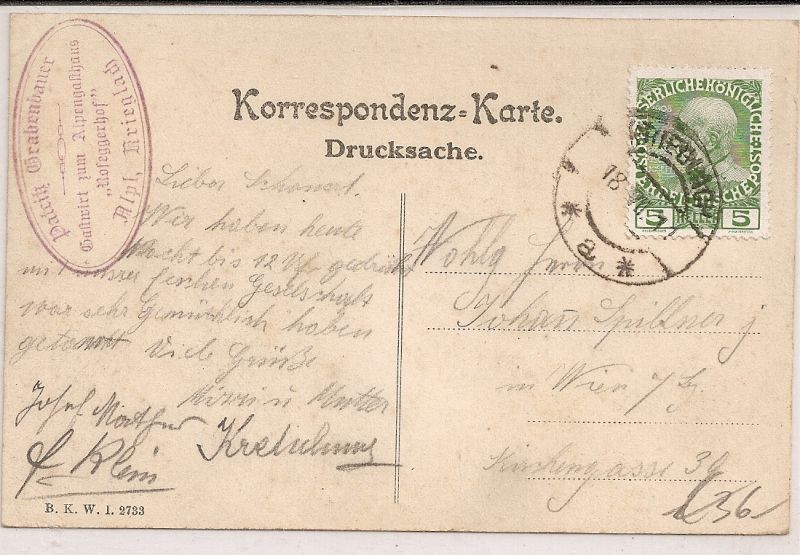 Patriz Grabenbauer
Gastwirt zum Alpengasthaus
"Roseggerhof"
Alpl, Krieglach
Korrespondenz-Karte.
Drucksache.
KAISERLICHE KÖNIGLICHE ÖSTERREICHISCHE
5 HELLER 5
18
Lieber Schorsch.
Wir haben heute
Nacht bis 12 Uhr
mit unserer feschen Gesellschaft
war sehr Gemütlich haben
getanzt Viele Grüße
Mizzi u Mutter
Josef
Klein
Wohlg Herrn
Johann Spillner j
in Wien 7 Bz
Kirchengasse 34
B. K. W. I. 2733